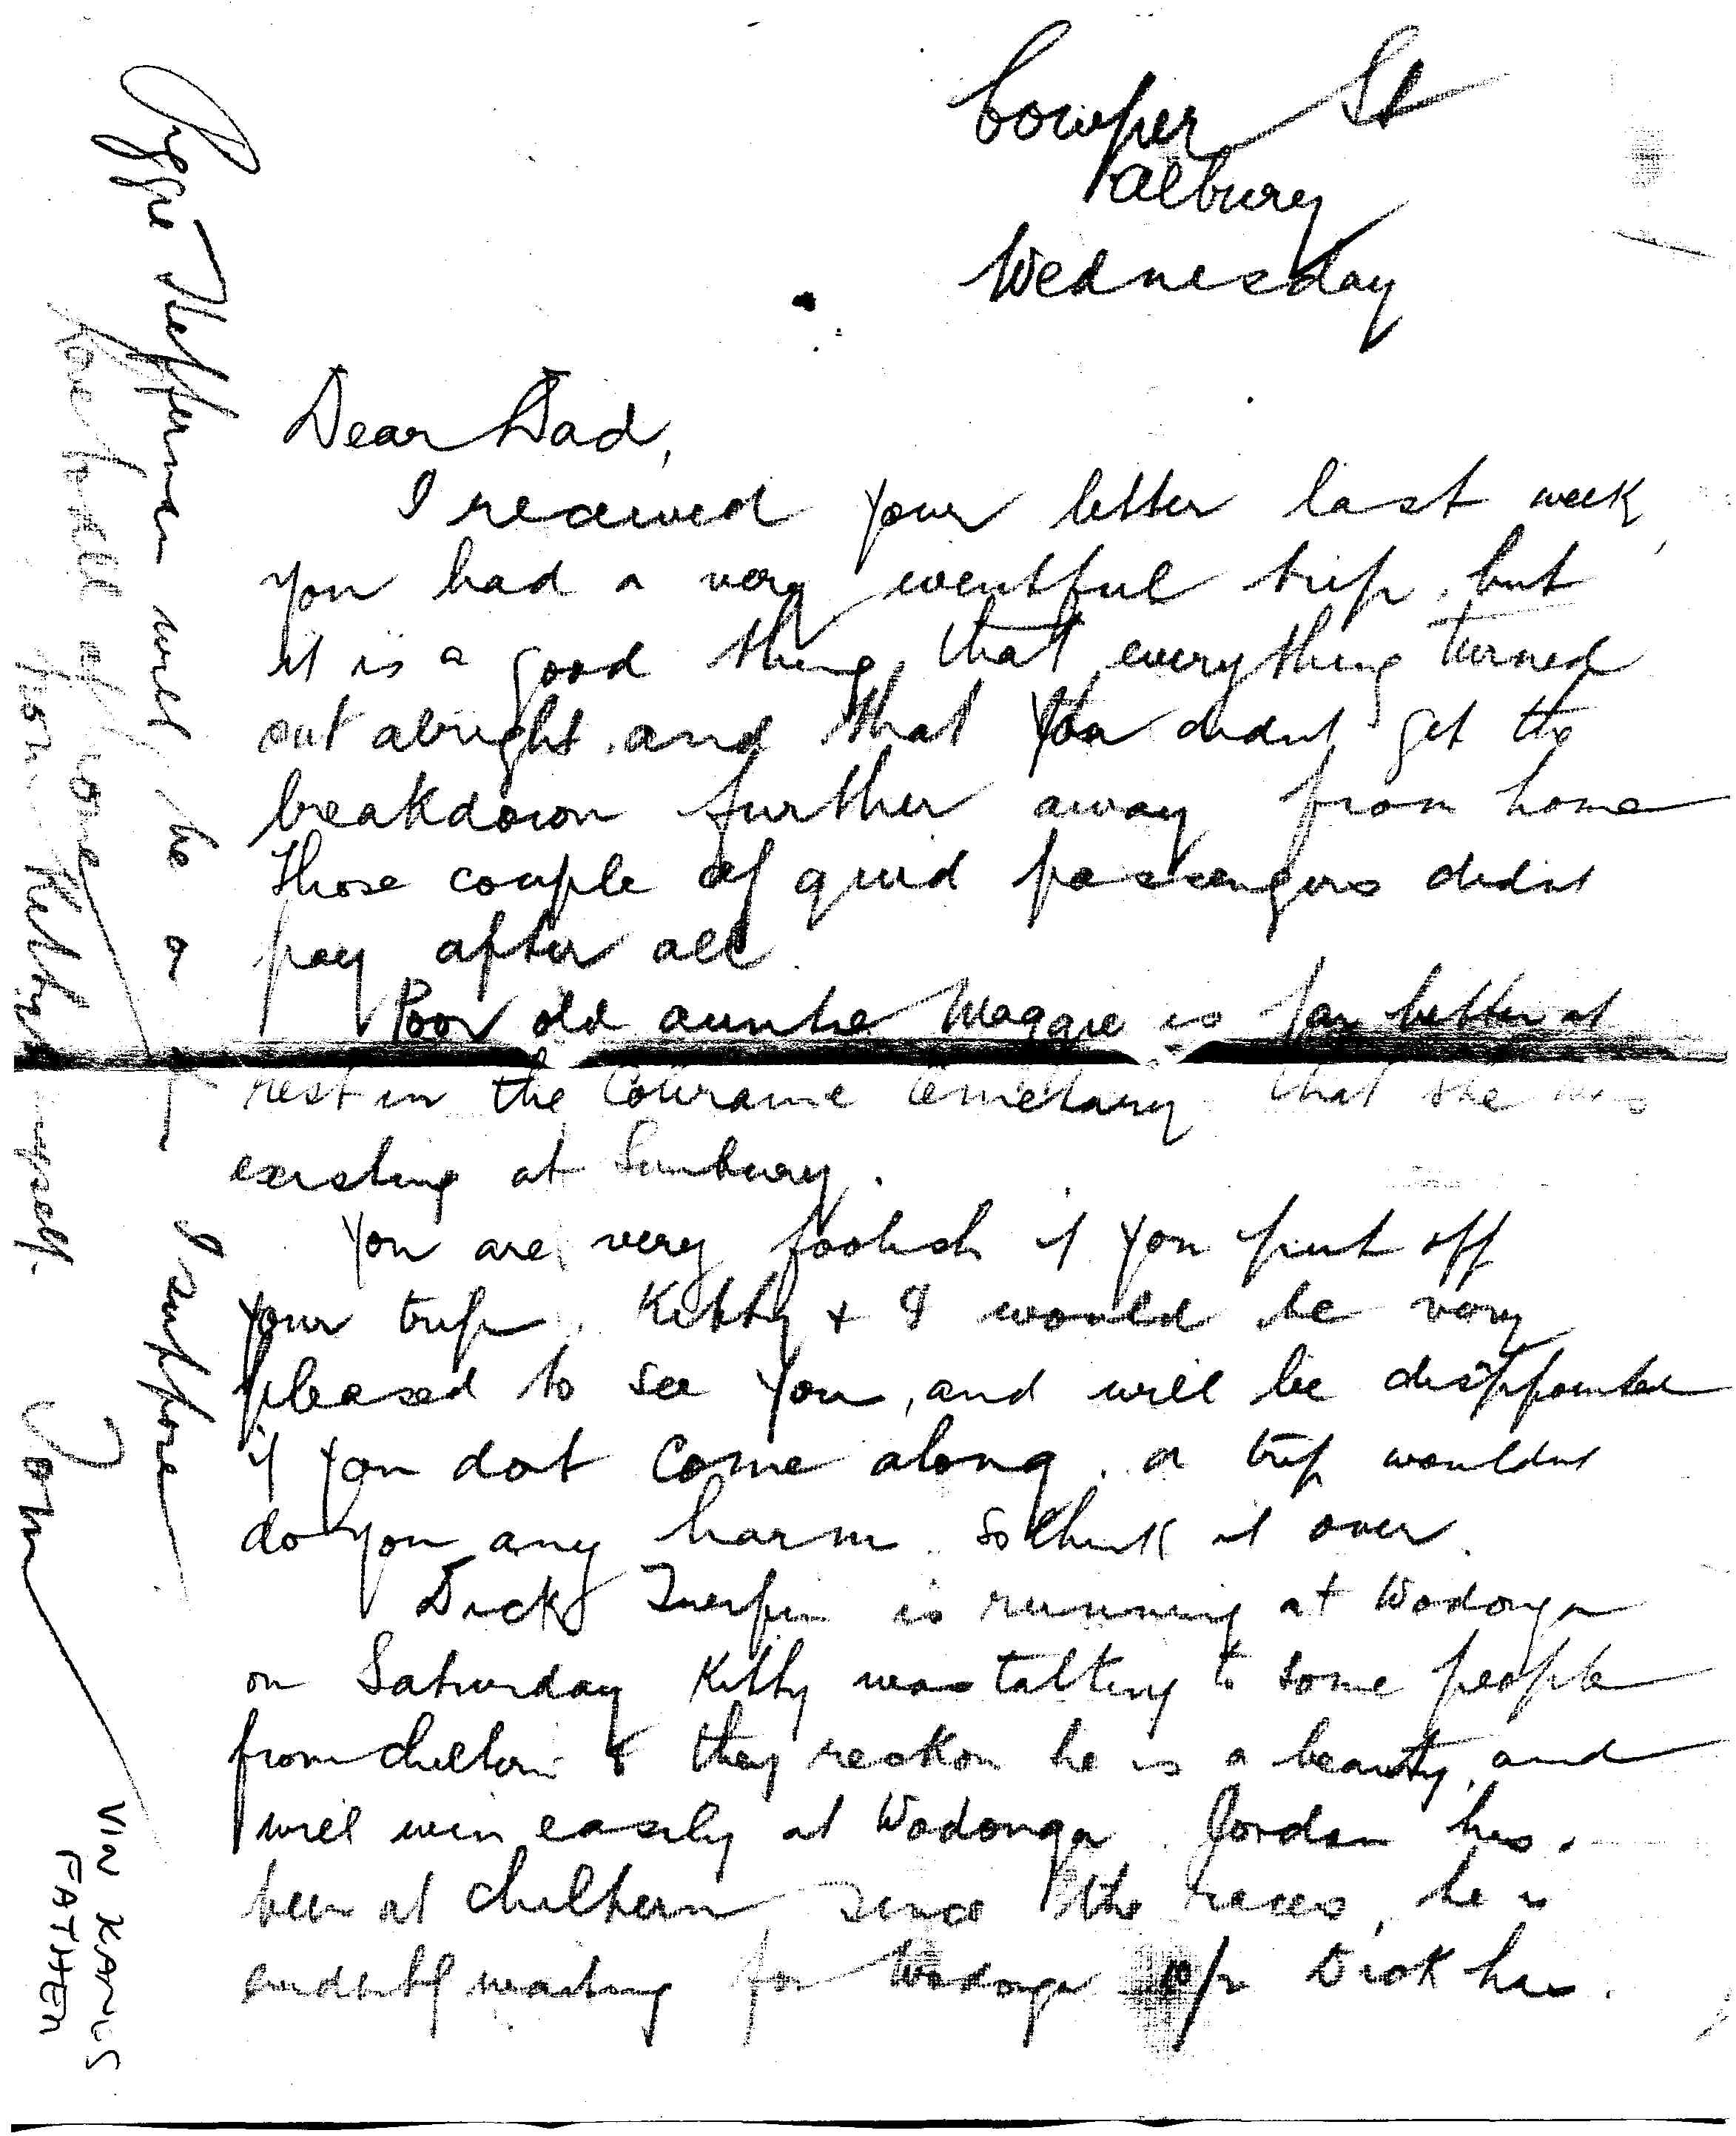 Cowper St
Albury
Wednesday
Dear Dad,
I received your letter last week,
you had a very eventful trip, but
it is a good thing, that everything turned
out alright, and that you didnt get the
breakdown further away from home
Those couple of quid passengers didnt
pay after all.
Poor old auntie Maggie is far better at
rest in the cemetary that she was
existing at Sunbury.
You are very foolish if you put off
your trip. Kitty & I would be very
pleased to see you, and will be disappointed
if you dont come along. a trip wouldnt
do you any harm. So think it over.
Dick Turpin is running at Wodonga
on Saturday Kitty was talking to some people
from Chiltern & they reckon he is a beauty, and
will win easily at Wodonga. Jordan has.
been at Chiltern since the races, he is
evidently waiting for Wodonga Dick has.
Peggie Heffernan will be a I suppose
Love to all at home
from Kitty & myself.
Tom
VIN KANES
FATHER